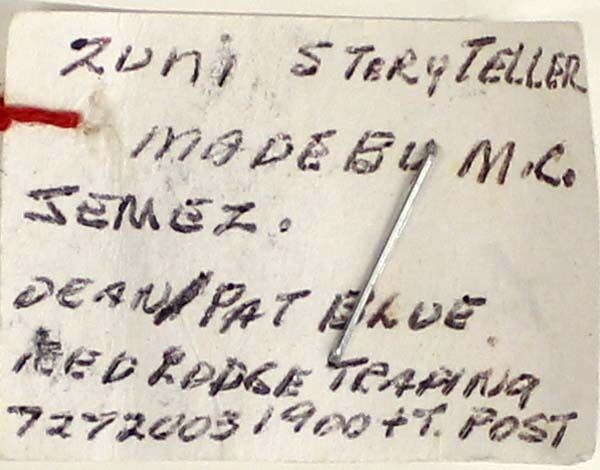 ZUNI STORYTELLER
MADE BY M.C.
JEMEZ.
DEAN/PAT BLUE
RED RODGE TRADING
7272003 1900+T. POST